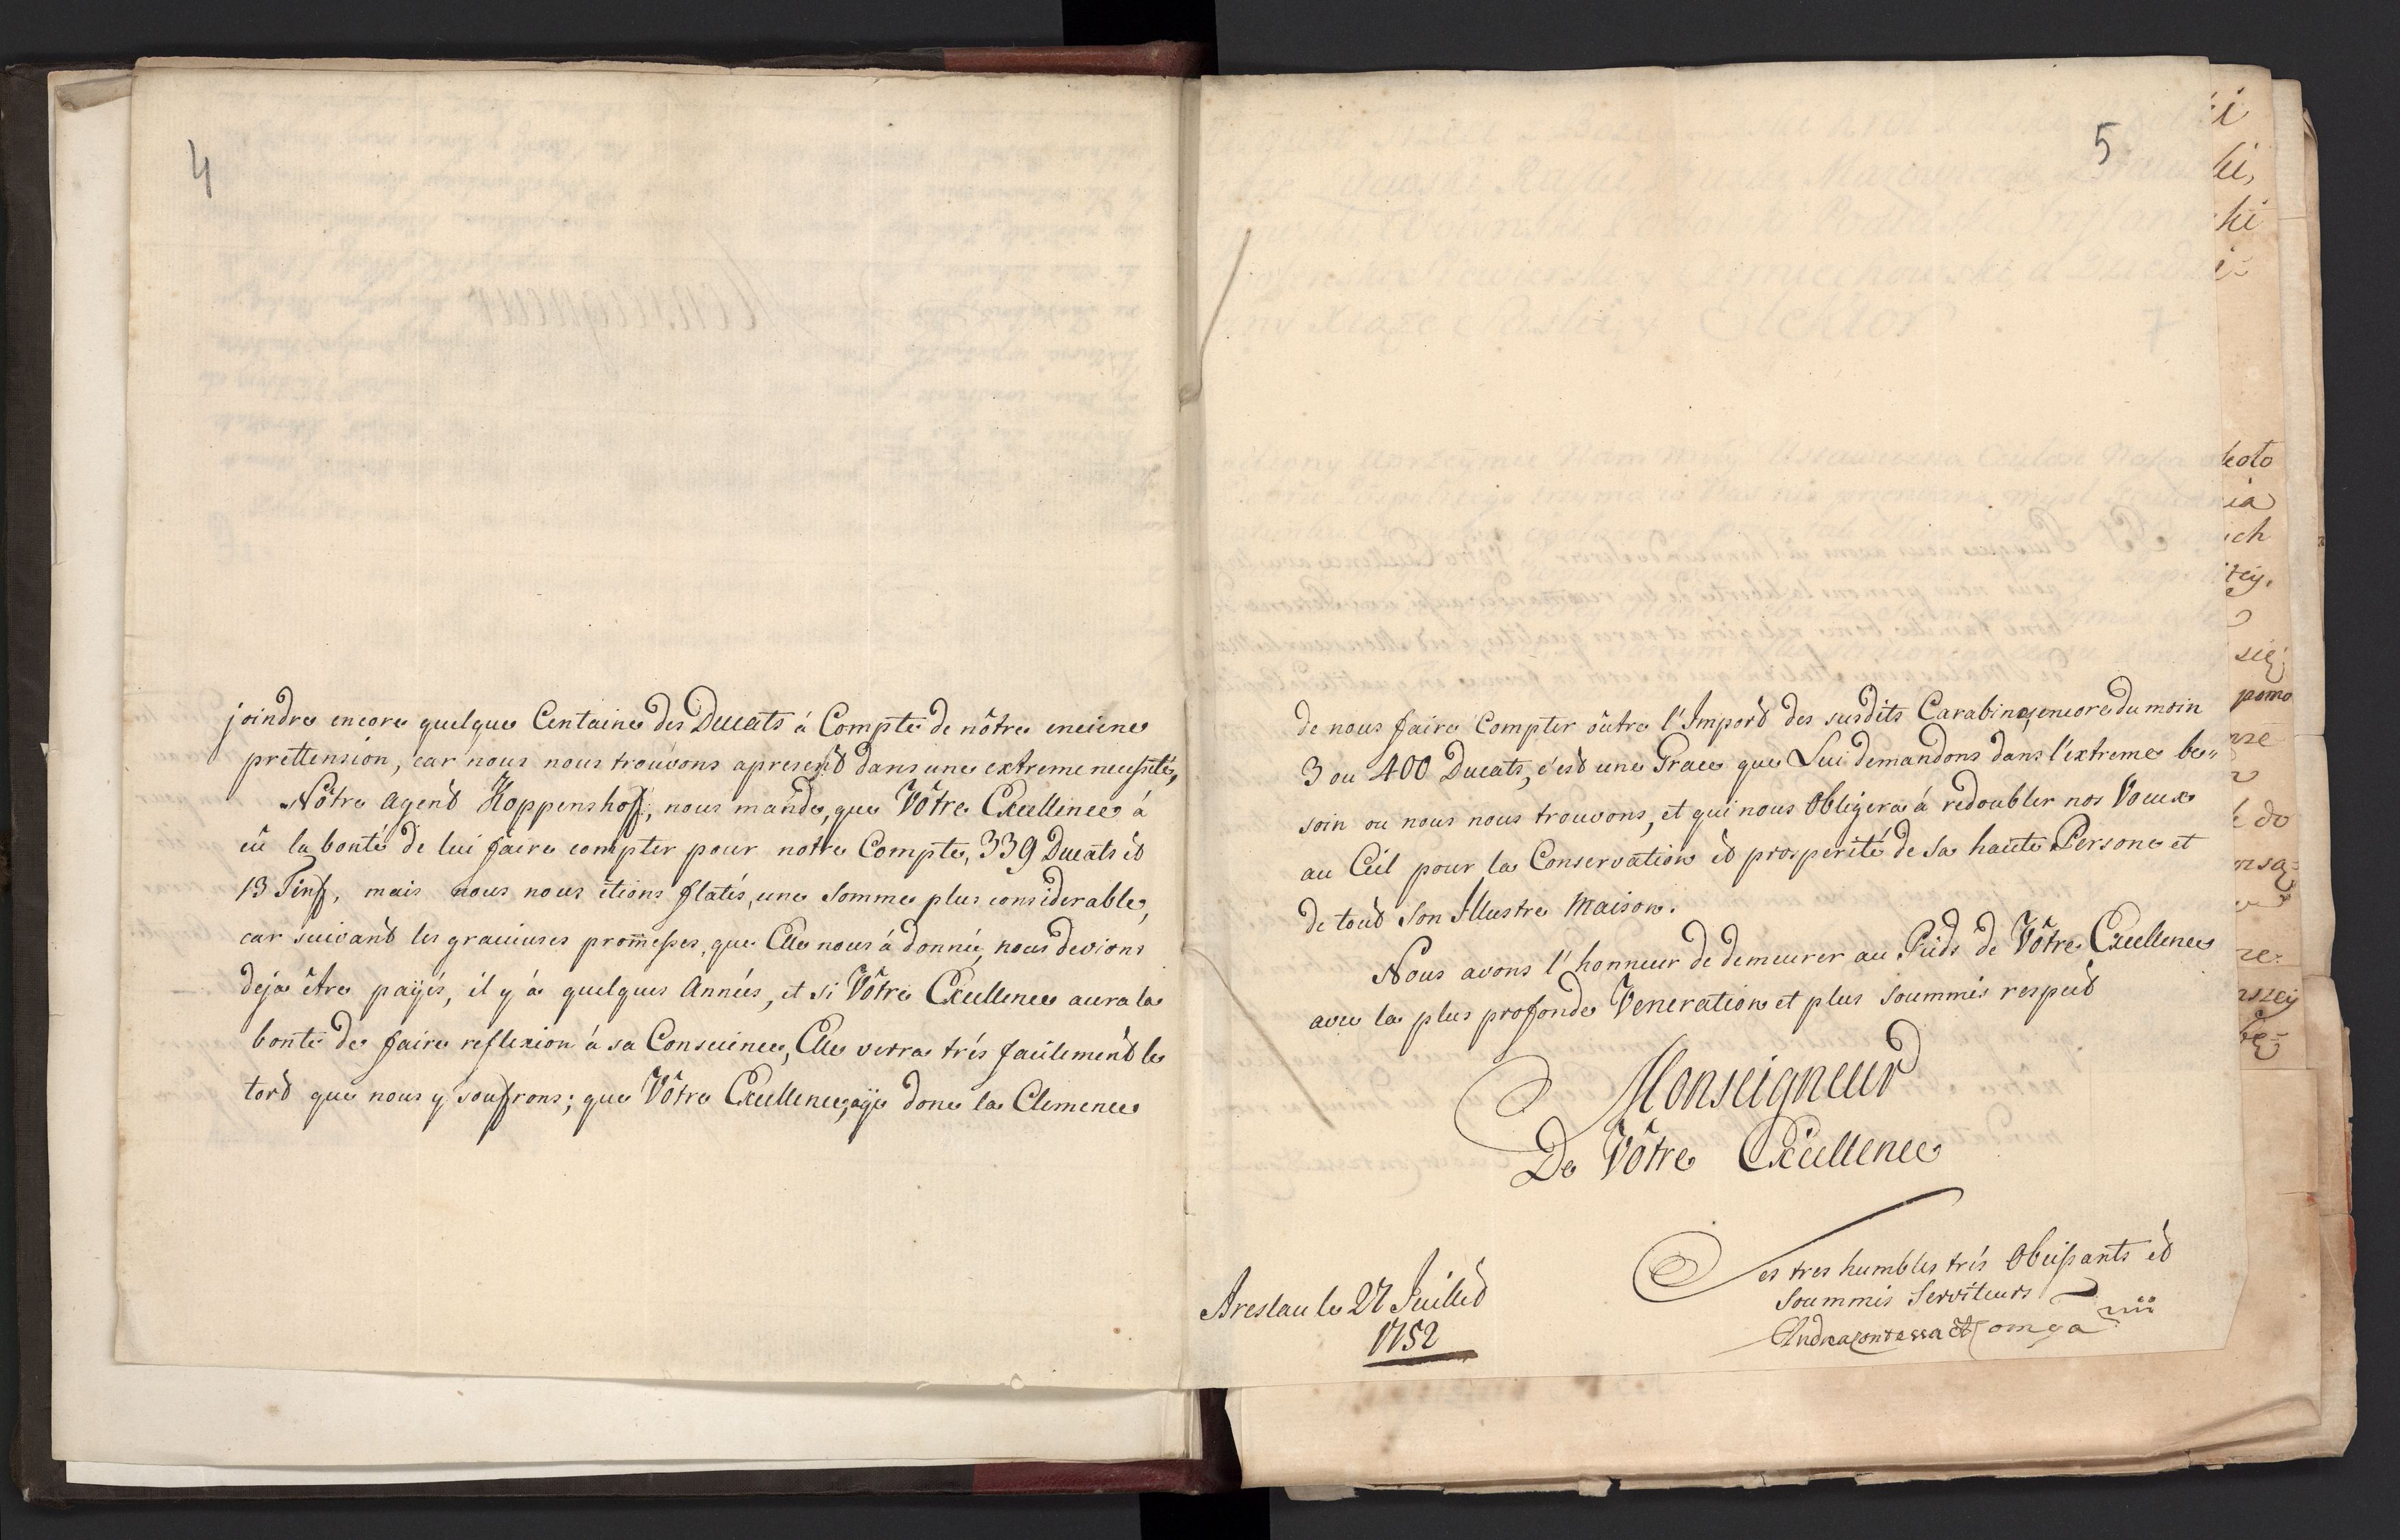 4
joindre encore quelque Centaine des Ducats á Compte de nôtre enciene
prettension, car nous nous trouvons apresent dans une extreme necessité,
Nôtre Agent Koppenshoff, nous mande, que Vôtre Excellence á
eû la bonté de lui faire compter pour notre Compte, 339 Ducats et
13 Tinf, mais nous nous étions flatés, une somme plus considerable,
car suivant les gracieuses promesses, que Elle nous á donnée, nous devions
deja être payés, il y'á quelques Années, et si Vôtre Excellence aura la
bonté de faire reflexion á sa Consience, Elle verra trés facilement le
tord que nous y souffrons; que Vôtre Excellence, aye donc la Clemence
5
de nous faire Compter oûtre l'Import des susdits Carabins, encore du moin
3 ou 400 Ducats, c'est une Grace que Lui demandons dans l'extreme be"
soin ou nous nous trouvons, et qui nous obligera á redoubler nos Voeux
au Ciel pour la Conservation et prosperité de sa haute Persone et
de tout son Illustre Maison.
Nous avons l'honneur de demeurer au Pieds de Vôtre Excellence
avec la plus profonde Veneration et plus soummis respect
Monseigneur
De Vôtre Excellence
Breslau le 27 Juillet
1752
Ses tres humbles trés Obeissants et
soummis Serviteurs
Andrea Contessa et Comga